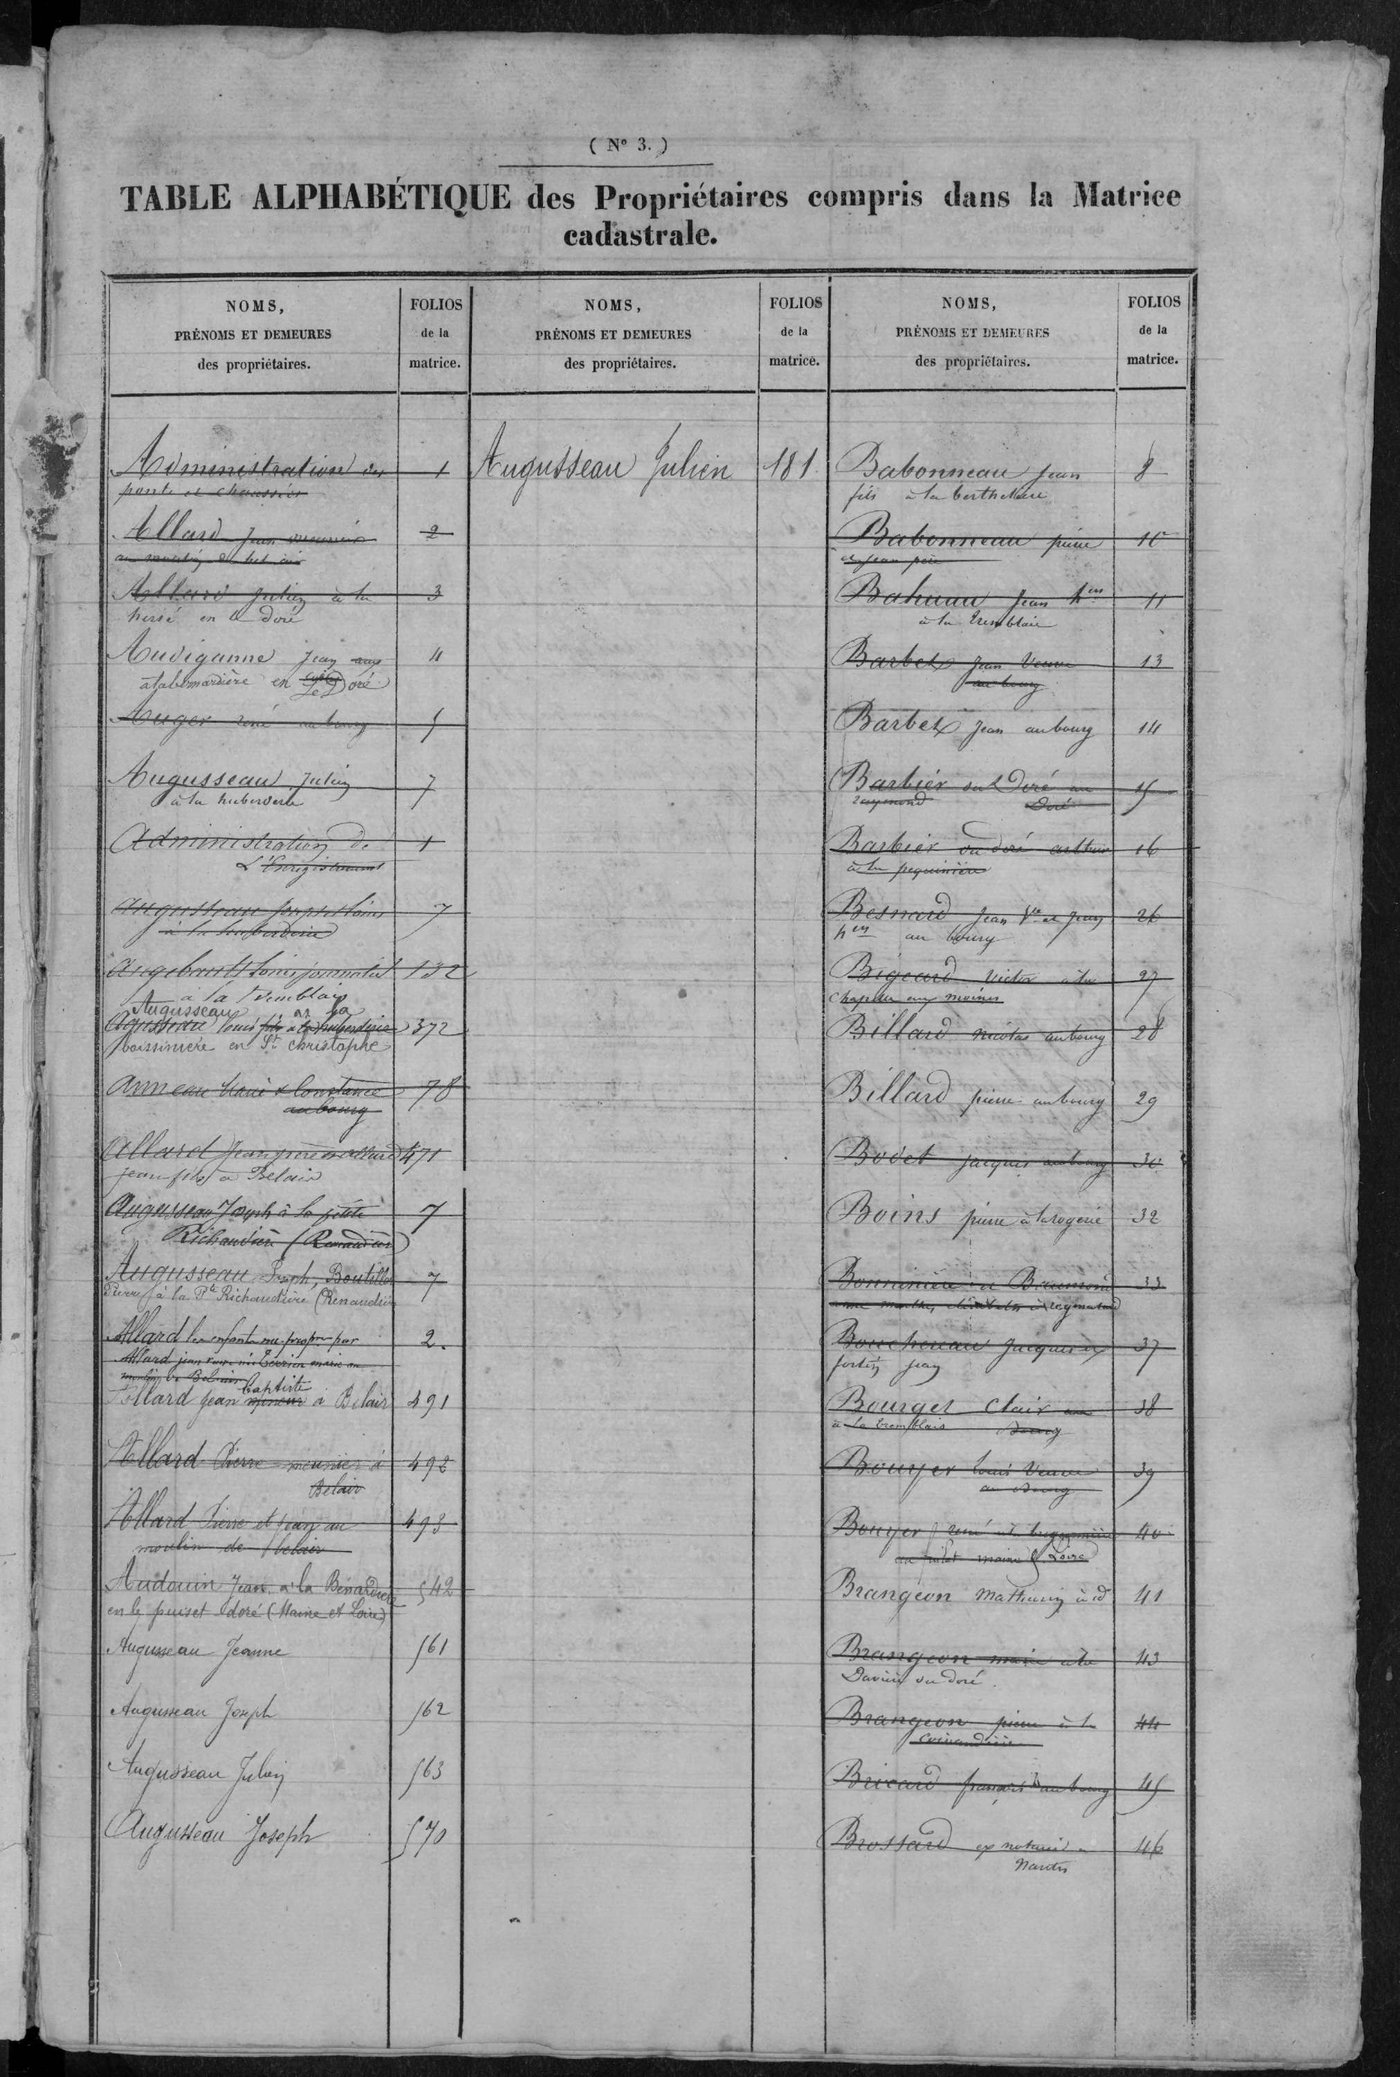 ( Nº 3. )
TABLE ALPHABÉTIQUE des Propriétaires compris dans la Matrice
cadastrale.
NOMS,
PRÉNOMS ET DEMEURES
des propriétaires.
FOLIOS
de la
matrice.
Administration des 1
ponts et chaussées
Allard Jean meunier 2
au moulin de bel air
Allard Julien à la 3
hersé en le doré
Audiganne Jean 4
en Le Doré
Auger rené au bourg 5
Augusseau Julien 7
à la huberderie
Administration de 1
L'Enregistrement
Augusseau Joseph Louis 7
à la huberderie
Angebault Louis journalier 132
à la tremblais
Augusseau
Louis fils à la huberderie 372
boissinière en St christophe
Anneau Marie & Constance 78
au bourg
Allard Jean père & allard 471
jean fils à Belair
Augusseau Joseph à la petite 7
Richaudière (Renaudière)
Augusseau Joseph, Boutiller 7
Pierre à la Pte Richaudière (Renaudière
Allard les enfants nu propre par 2.
Allard jean veuve née Terrien marie au
moulin de Belair
baptiste
Allard Jean mineur à Belair 491
Allard Pierre meunier à 492
Belair
Allard Pierre et Jean au 493
moulin de belair
Audouin Jean à la Bénardière 542
en le puiset doré (Maine et Loire)
Augusseau Jeanne 561
Augusseau Joseph 562
Augusseau Julien 563
Augusseau Joseph 570
NOMS,
PRÉNOMS ET DEMEURES
des propriétaires.
FOLIOS
de la
matrice.
Augusseau Julien 181.
NOMS,
PRÉNOMS ET DEMEURES
des propriétaires.
FOLIOS
de la
matrice.
Babonneau Jean 8
fils à la
Babonneau pierre 10
et Jean père
Bahuau Jean hers 11
à la tremblaie
Barbet Jean Veuve 13
au bourg
Barbet Jean au bourg 14
Barbier du Doré au 15
raymond Doré
Barbier du doré arthur 16
à la
Besnard Jean Ve et Jean 26
hers au bourg
Bigeard Victor à la 27
chapelle aux moines
Billard nicolas au bourg 28
Billard pierre au bourg 29
Bodet jacques au bourg 30
Boins pierre à la rogerie 32
Bonninière de Beaumont 33
Bouchereau Jacques 37
fortin Jean
Bourget Clair au 38
à la tremblais bourg
Bouyer Louis Veuve 39
au Bourg
Bouyer rené à la 40
maine & Loire
Brangeon Mathurin à id 41
Brangeon marie à la 43
Davière du doré
Brangeon pierre à la 44
Bricard françois au bourg 45
Brossard ex notaire à 46
Nantes